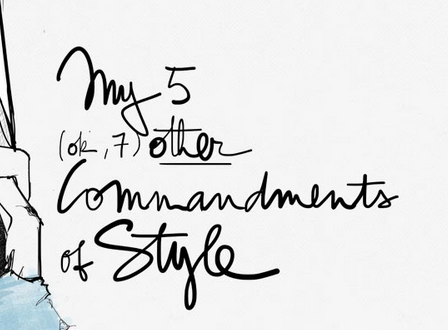 My 5
(ok, 7) other
Commandments
of Style